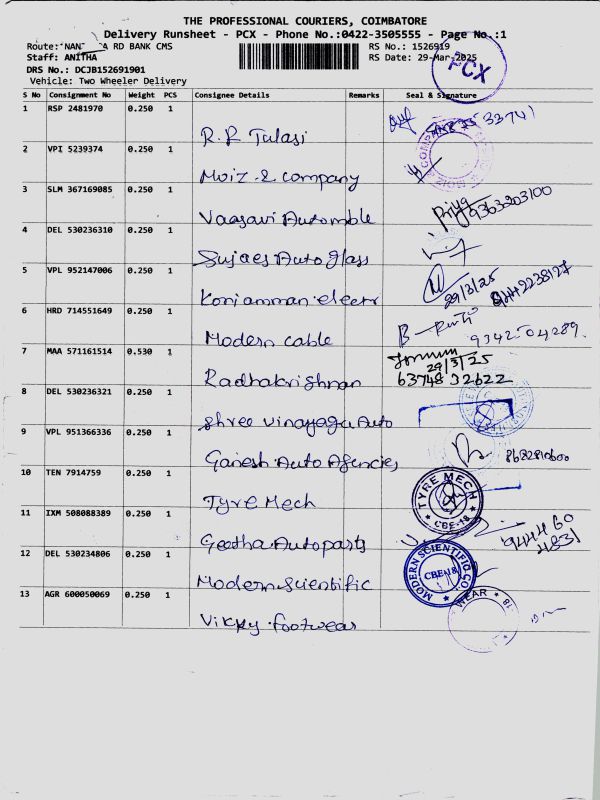 THE PROFESSIONAL COURIERS, COIMBATORE
Delivery Runsheet - PCX - Phone No.:0422-3505555 - Page No.:1
Route: RD BANK CMS
RS No.: 1526919
Staff: ANITHA
RS Date: 29-Mar-2025
PCX
DRS No.: DCJB152691901
Vehicle: Two Wheeler Delivery
S No Consignment No Weight PCS Consignee Details Remarks Seal & Signature
1 RSP 2481970 0.250 1 R.R Tulasi
2 VPI 5239374 0.250 1 Moiz & company
3 SLM 367169085 0.250 1 Vaasavi Automble 9363203100
4 DEL 530236310 0.250 1 Sujaes Auto glass
5 VPL 952147006 0.250 1 Koniamman electr 29/3/25
6 HRD 714551649 0.250 1 Modern cable
7 MAA 571161514 0.530 1 Radhakrishnan 29/3/25
63748 32622
8 DEL 530236321 0.250 1 Shree Vinayaga Auto
9 VPL 951366336 0.250 1 Ganesh Auto Agencies
10 TEN 7914759 0.250 1 Tyre Mech TYRE MECH CBE-18
11 IXM 508088389 0.250 1 Geetha Autoparts 94446 0
4831
12 DEL 530234806 0.250 1 Modern Scientific MODERN SCIENTIFIC CO. CBE-18
13 AGR 600050069 0.250 1 Vikky footwear WEAR